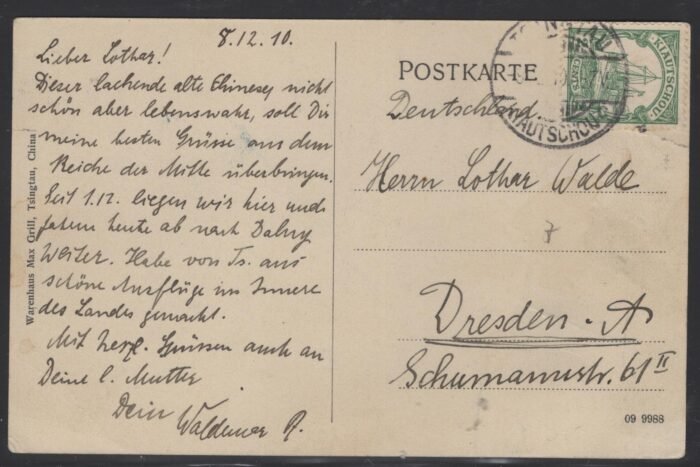 8.12.10.
Lieber Lothar!
Dieser lachende alte Chinese, nicht
schön aber lebenswahr, soll Dir
meine besten Grüsse aus dem
Reiche der Mitte überbringen.
Seit 1.12. liegen wir hier und
fahren heute ab nach Dalny
weiter. Habe von Ts. aus
schöne Ausflüge ins Innere
des Landes gemacht.
Mit herzl. Grüssen auch an
Deine l. Mutter
Dein Waldemar R.
Warenhaus Max Grill, Tsingtau, China
POSTKARTE
Deutschland
Herrn Lothar Walde
7
Dresden-A
Schumannstr. 61 II
09 9988
KIAUTSCHOU
CENTS
TSINGTAU
KIAUTSCHOU